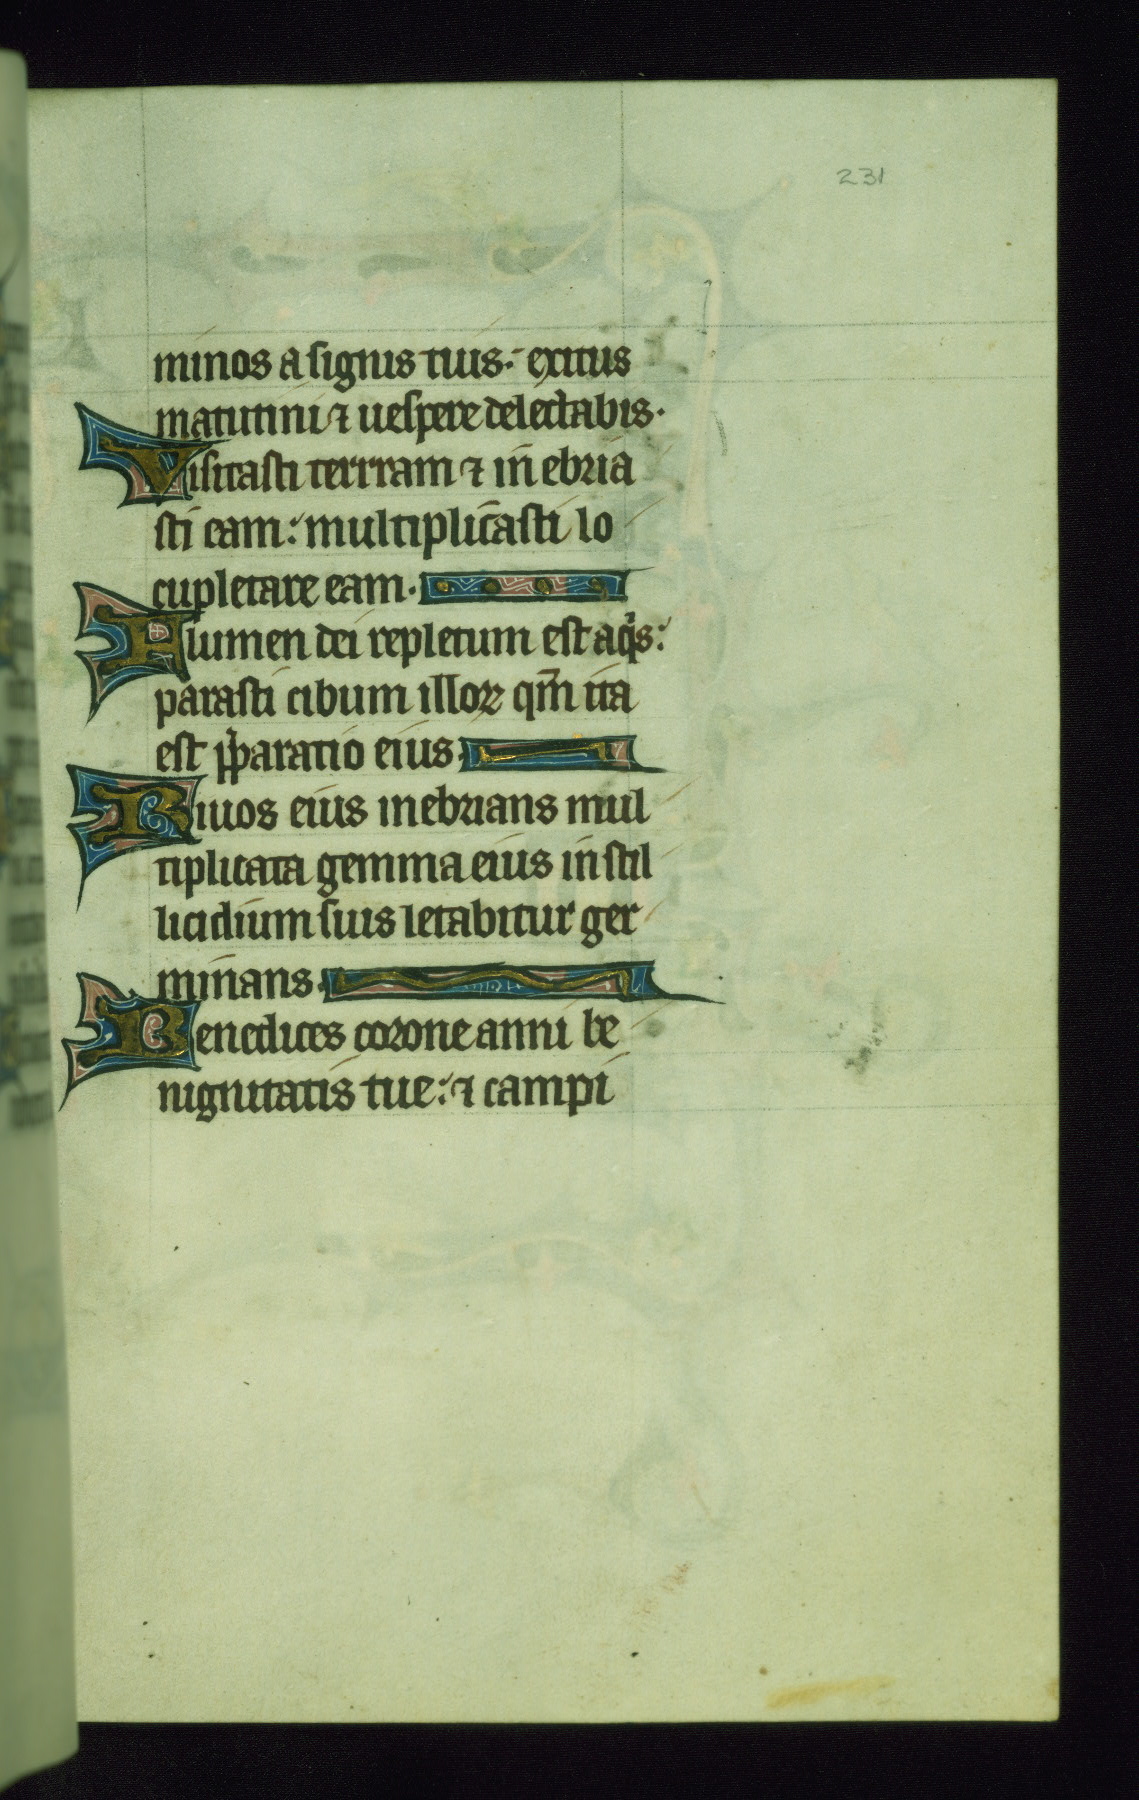 231
minos a signis tuis: exitus
matutini ⁊ uespere delectabis.
Visitasti terrram ⁊ in ebria
sti eam: multiplicasti lo
cupletare eam.
Flumen dei repletum est aq̇s:
parasti cibum illoꝝ qm̄ ita
est p̄paratio eius
Riuos eius inebrians mul
tiplicata gemma eius in stil
licidium suis letabitur ger
minans.
Benedices corone anni be
nignitatis tue: ⁊ campi